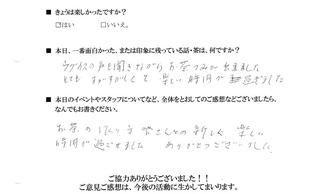 ■ きょうは楽しかったですか？
☑はい □いいえ。
■ 本日、一番面白かった、または印象に残っている話・茶は、何ですか？
ウグイスの声を聞きながらお茶つみが出来ました
とても すがすがしくて 楽しい時間が過ごせました
■ 本日のイベントやスタッフについてなど、全体をとおしてのご感想などございましたら、
なんでもお書きください。
お茶の 皆さんとの 楽しい
時間が過ごせました ありがとうございました。
ご協力ありがとうございました！！
ご意見ご感想は、今後の活動に生かしてまいります。